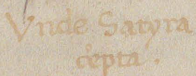 Vnde Satyra
cepta.